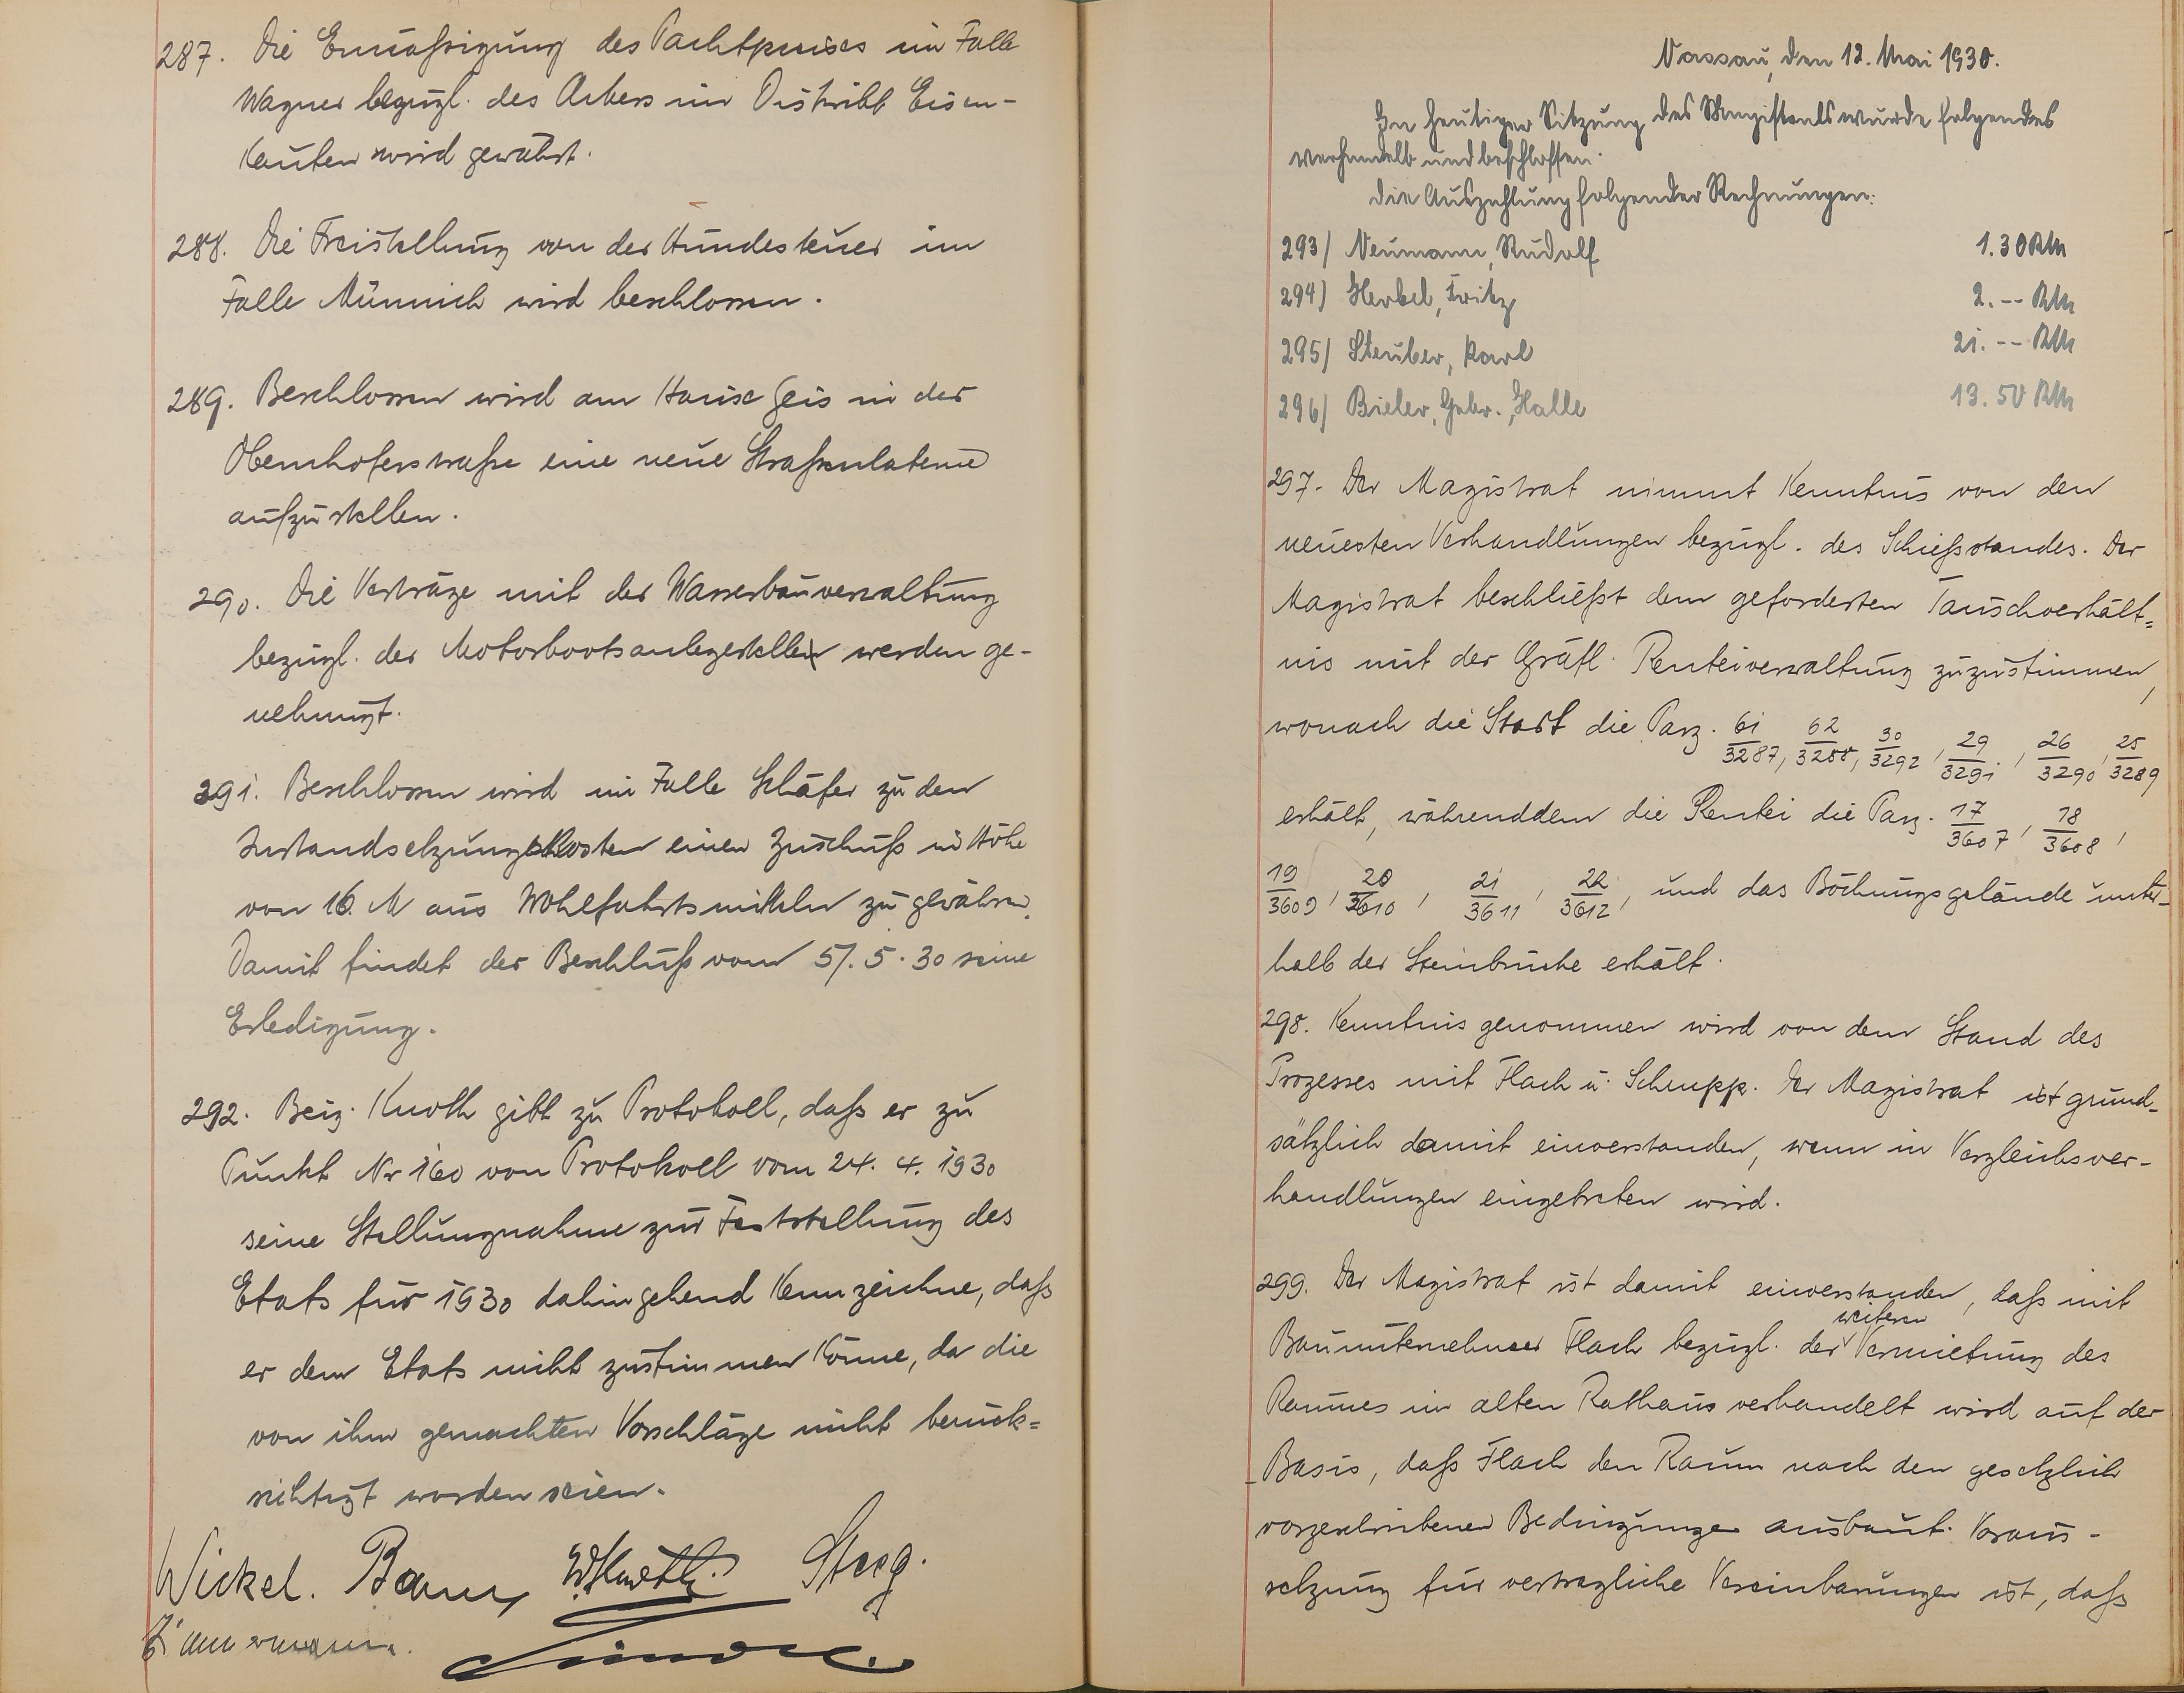 287. Die Ermäßigung des Pachtpreises im Falle
Wagner bezügl. des Ackers im Distrikt Eisen-
kauten wird gewährt.
288. Die Freistellung von der Hundesteuer im
Falle Münnich wird beschlossen.
289. Beschlossen wird am Hause Geis in der
Obernhoferstraße eine neue Straßenlaterne
aufzustellen.
290. Die Verträge mit der Wasserbauverwaltung
bezügl. der Motorbootsanlegestelle werden ge-
nehmigt.
291. Beschlossen wird im Falle Schäfer zu den
Instandsetzungskosten einen Zuschuß in Höhe
von 16. M aus Wohlfahrtsmitteln zu gewähren.
Damit findet der Beschluß vom 5/. 5. 30 seine
Erledigung.
292. Beig. Knoth gibt zu Protokoll, daß er zu
Punkt Nr 160 von Protokoll vom 24. 4. 1930
seine Stellungnahme zur Feststellung des
Etats für 1930 dahingehend kennzeichne, daß
er dem Etats nicht zustimmen könne, da die
von ihm gemachten Vorschläge nicht berück=
sichtigt worden seien.
Wickel. Baum W. Knoth Steeg.
Zimmermann.
Nassau, den 12. Mai 1930.
In heutiger Sitzung des Magistrats wurde folgendes
verhandelt und beschlossen.
Die Auszahlung folgender Rechnungen:
293/ Neumann, Rudolf 1.30 RM
294) Herbel, Fritz 2.-- RM
295/ Steuber, Karl 21.-- RM
296/ Bieler, Gebr., Halle 13.50 RM
297. Der Magistrat nimmt Kenntnis von den
neuesten Verhandlungen bezügl. des Schießstandes. Der
Magistrat beschließt dem geforderten Tauschverhält=
nis mit der Gräfl. Renteiverwaltung zuzustimmen,
wonach die Stadt die Parz. 61/3287, 62/3288, 30/3292, 29/3291, 26/3290, 25/3289
erhält, währenddem die Rentei die Parz. 17/3607, 18/3608,
19/3609, 20/3610, 21/3611, 22/3612, und das Böchungsgelände unter-
halb der Steinbrüche erhält.
298. Kenntnis genommen wird von dem Stand des
Prozesses mit Flach u. Schupp. Der Magistrat ist grund-
sätzlich damit einverstanden, wenn in Vergleichsver-
handlungen eingetreten wird.
299. Der Magistrat ist damit einverstanden, daß mit
Bauunternehmer Flach bezügl. der weiteren Vermietung des
Raumes im alten Rathaus verhandelt wird auf der
Basis, daß Flach den Raum nach den gesetzlich
vorgeschriebenen Bedingungen ausbaut. Voraus-
setzung für vertragliche Vereinbarungen ist, daß